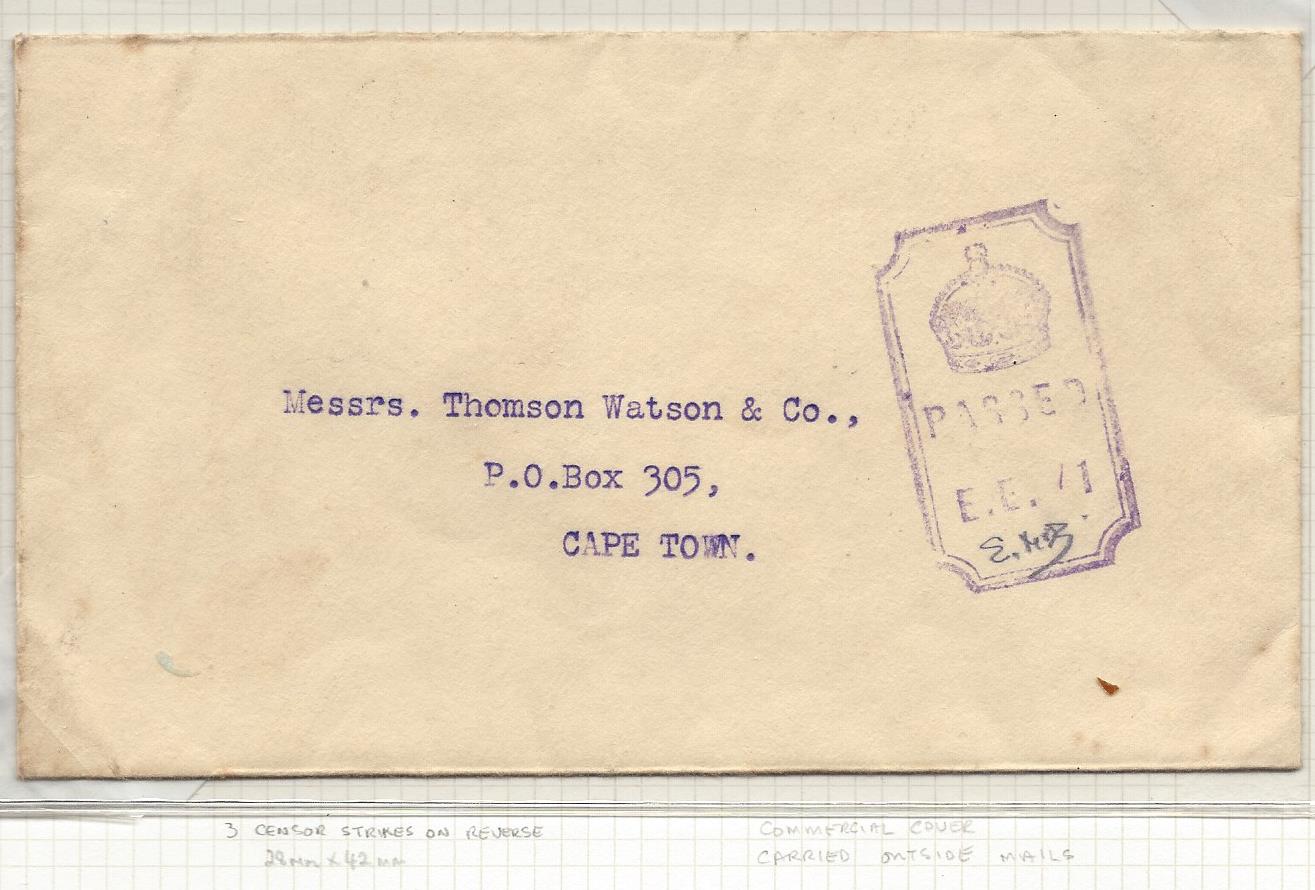 Messrs. Thomson Watson & Co.,
P.O.Box 305,
CAPE TOWN.
PASSED
E.E. 71
3 CENSOR STRIKES ON REVERSE
28mm x 42mm
COMMERCIAL COVER
CARRIED OUTSIDE MAILS